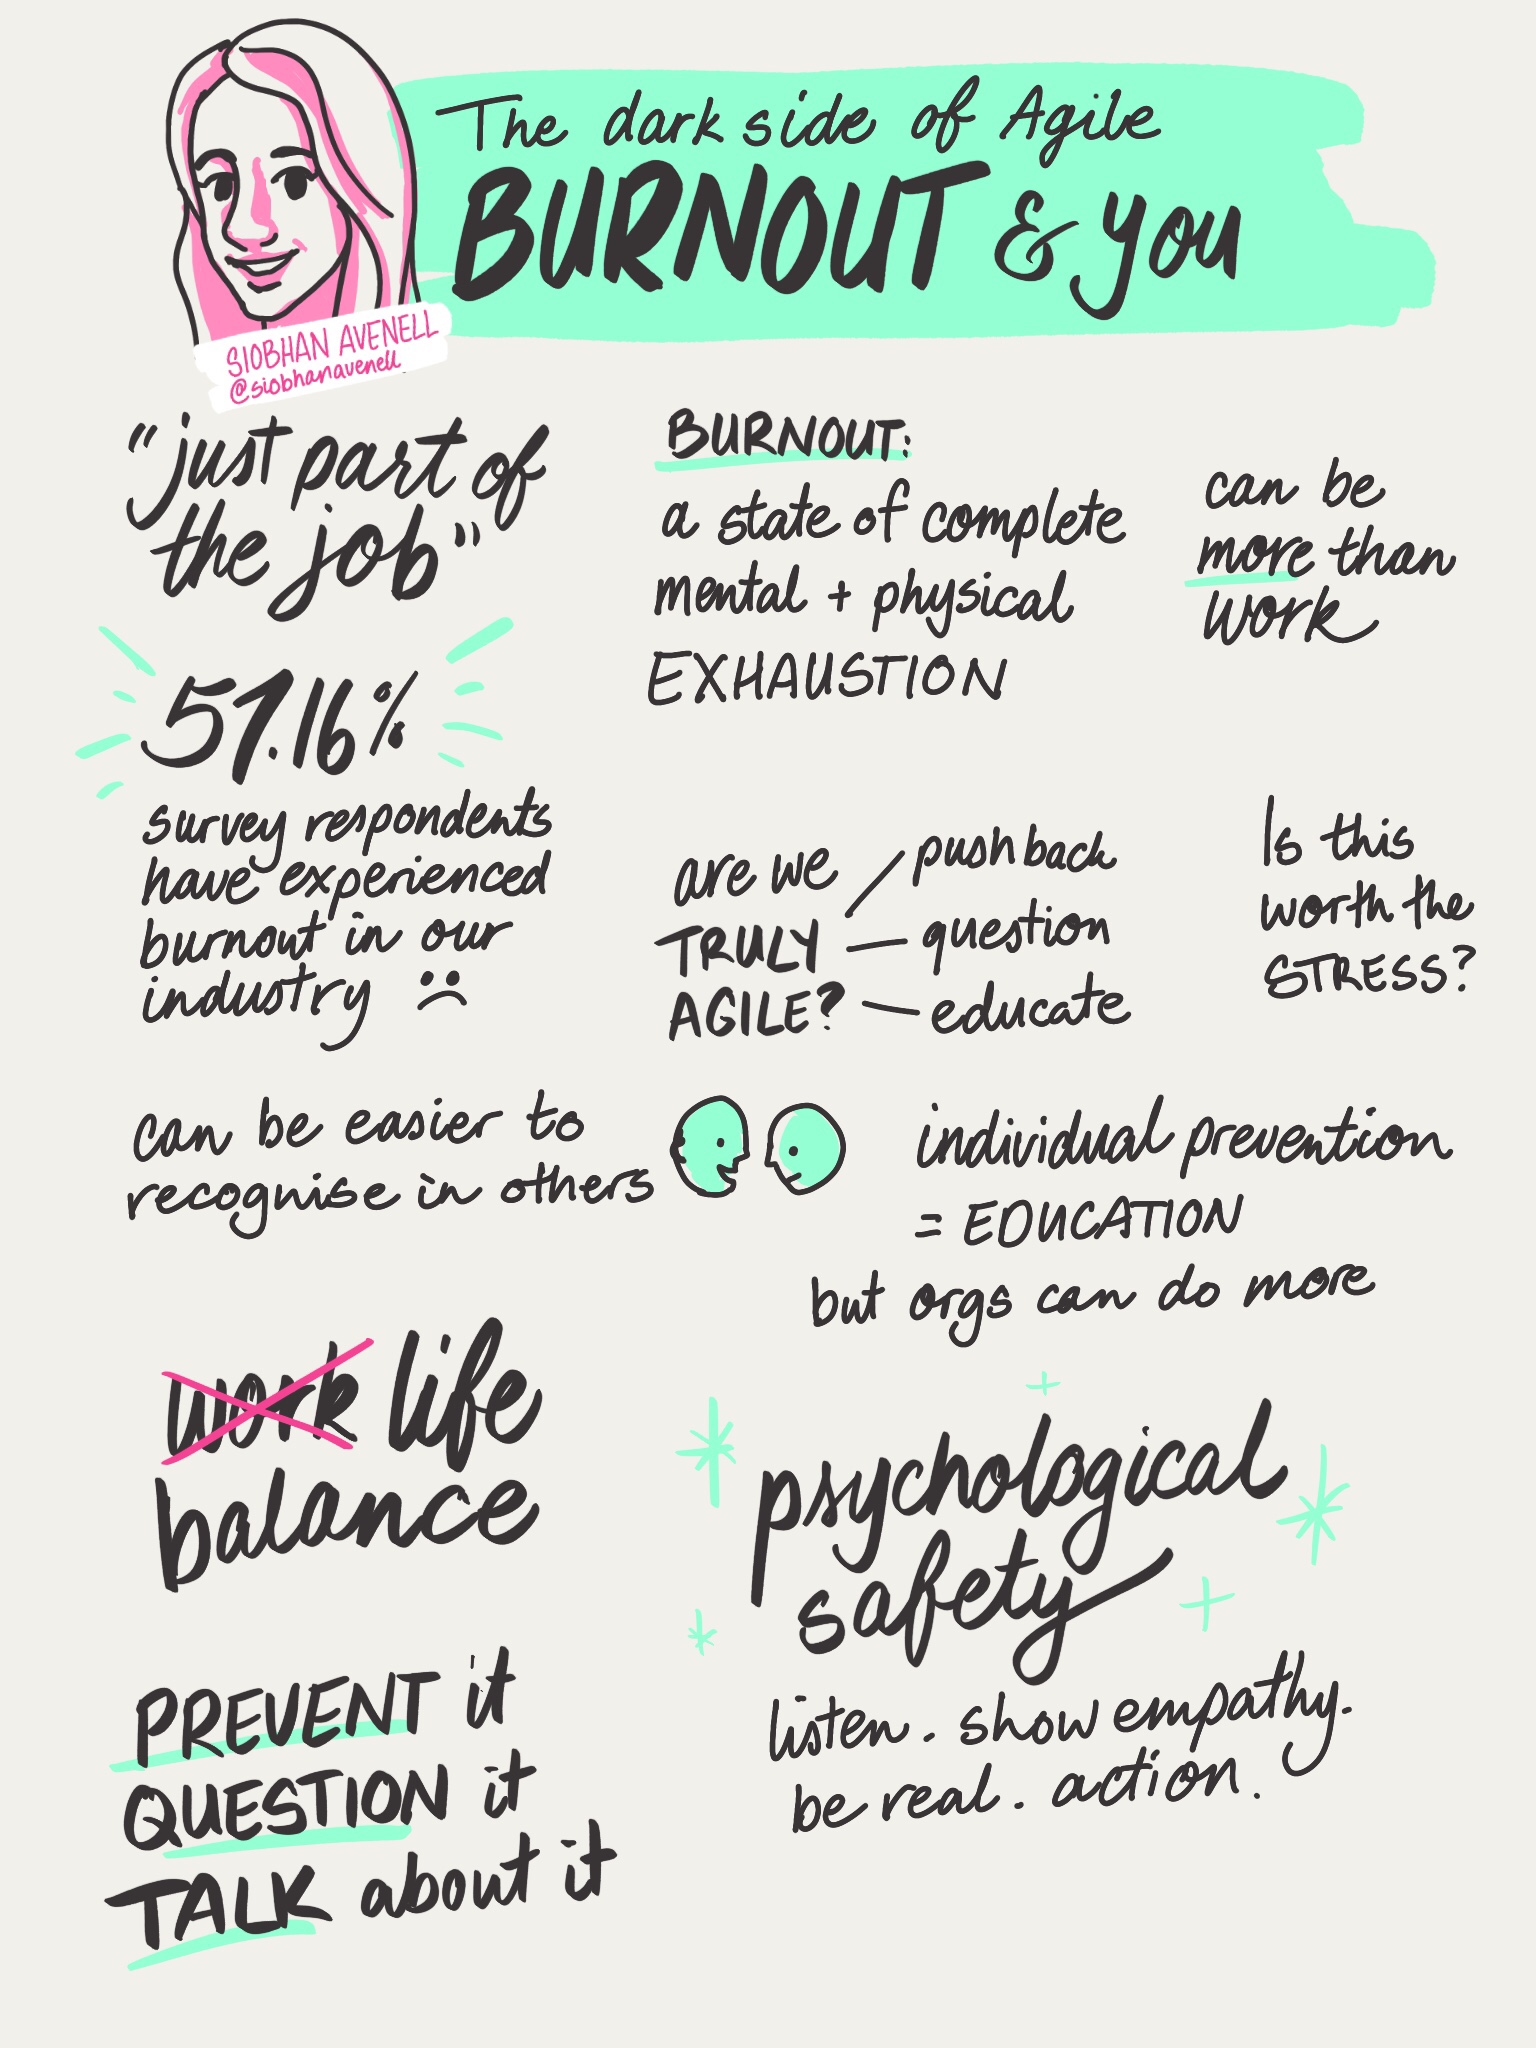 The dark side of Agile
BURNOUT & you
SIOBHAN AVENELL
@siobhanavenell
"just part of
the job"
57.16%
survey respondents
have experienced
burnout in our
industry :(
BURNOUT:
a state of complete
mental + physical
EXHAUSTION
can be
more than
work
are we
TRULY
AGILE?
push back
question
educate
Is this
worth the
STRESS?
can be easier to
recognise in others
individual prevention
= EDUCATION
but orgs can do more
work life
balance
psychological
safety
listen. show empathy.
be real. action.
PREVENT it
QUESTION it
TALK about it